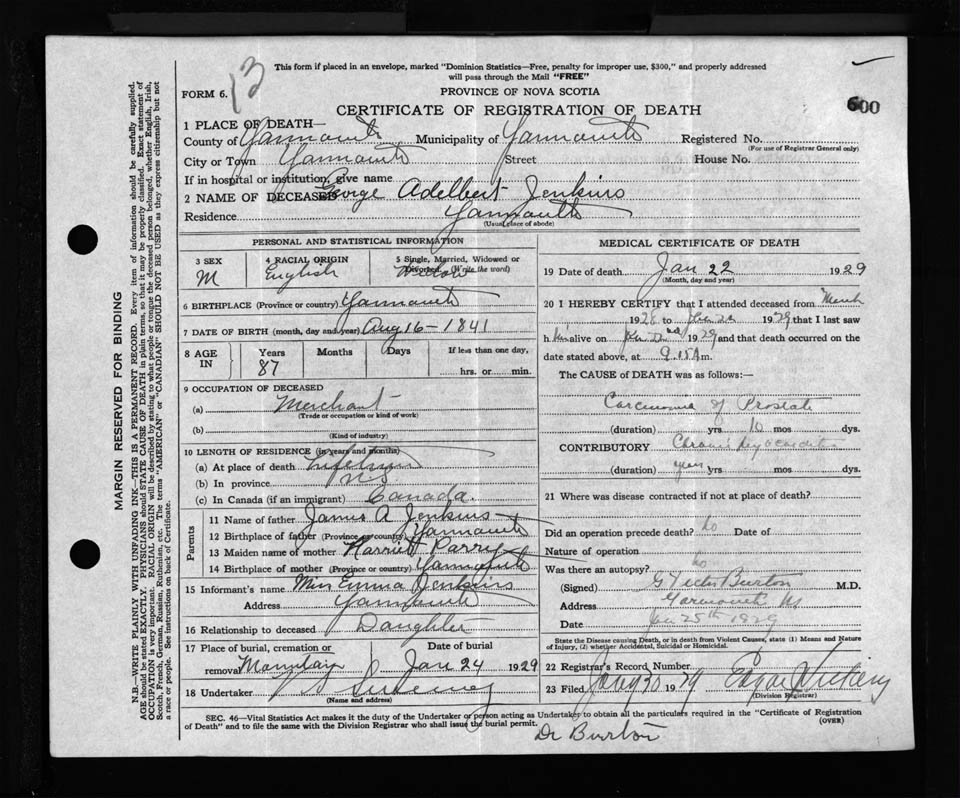 This form if placed in an envelope, marked "Dominion Statistics—Free, penalty for improper use, $300," and properly addressed
will pass through the Mail "FREE"
FORM 6.
13
PROVINCE OF NOVA SCOTIA
CERTIFICATE OF REGISTRATION OF DEATH
600
1 PLACE OF DEATH—
County of Yarmouth Municipality of Yarmouth Registered No.
(For use of Registrar General only)
City or Town Yarmouth Street House No.
If in hospital or institution, give name
2 NAME OF DECEASED George Adelbert Jenkins
Residence Yarmouth
(Usual place of abode)
PERSONAL AND STATISTICAL INFORMATION
3 SEX 4 RACIAL ORIGIN 5 Single, Married, Widowed or
Divorced (Write the word)
M English Widow
6 BIRTHPLACE (Province or country) Yarmouth
7 DATE OF BIRTH (month, day and year) Aug 16 - 1841
8 AGE IN Years Months Days If less than one day,
87 hrs. or min.
9 OCCUPATION OF DECEASED
(a) Merchant
(Trade or occupation or kind of work)
(b)
(Kind of industry)
10 LENGTH OF RESIDENCE (in years and months)
(a) At place of death Lifetime
(b) In province N.S.
(c) In Canada (if an immigrant) Canada
Parents
11 Name of father James A Jenkins
12 Birthplace of father (Province or country) Yarmouth
13 Maiden name of mother Harriet Parry
14 Birthplace of mother (Province or country) Yarmouth
15 Informant's name Miss Emma Jenkins
Address Yarmouth
16 Relationship to deceased Daughter
17 Place of burial, cremation or Date of burial
removal Mountain Jan 24 1929
18 Undertaker
(Name and address)
MEDICAL CERTIFICATE OF DEATH
19 Date of death Jan 22 1929
(Month, day and year)
20 I HEREBY CERTIFY that I attended deceased from March
1928 to Jan 22 1929 that I last saw
him alive on Jan 1929 and that death occurred on the
date stated above, at 9.15 A m.
The CAUSE of DEATH was as follows:—
Carcinoma of Prostate
(duration) yrs. 10 mos dys.
CONTRIBUTORY Chronic Myocarditis
(duration) years yrs mos dys.
21 Where was disease contracted if not at place of death?
Did an operation precede death? no Date of
Nature of operation
Was there an autopsy? no
(Signed) G Victor Burton M.D.
Address Yarmouth NS
Date Jan 25th 1929
State the Disease causing Death, or in death from Violent Causes, state (1) Means and Nature
of Injury, (2) whether Accidental, Suicidal or Homicidal.
22 Registrar's Record Number
23 Filed Jany 30 1929 Edgar
(Division Registrar)
SEC. 46—Vital Statistics Act makes it the duty of the Undertaker or person acting as Undertaker to obtain all the particulars required in the "Certificate of Registration
of Death" and to file the same with the Division Registrar who shall issue the burial permit. (OVER)
Dr Burton
MARGIN RESERVED FOR BINDING
N.B.—WRITE PLAINLY WITH UNFADING INK—THIS IS A PERMANENT RECORD. Every item of information should be carefully supplied.
AGE should be stated EXACTLY. PHYSICIANS should STATE CAUSE OF DEATH in plain terms, so that it may be properly classified. Exact statement of
OCCUPATION is very important. RACIAL ORIGIN will be described by stating to what people or tongue the deceased person belonged, whether English, Irish,
Scotch, French, German, Russian, Ruthenian, etc. The terms "AMERICAN" or "CANADIAN" SHOULD NOT BE USED as they express citizenship but not
a race or people. See instructions on back of Certificate.